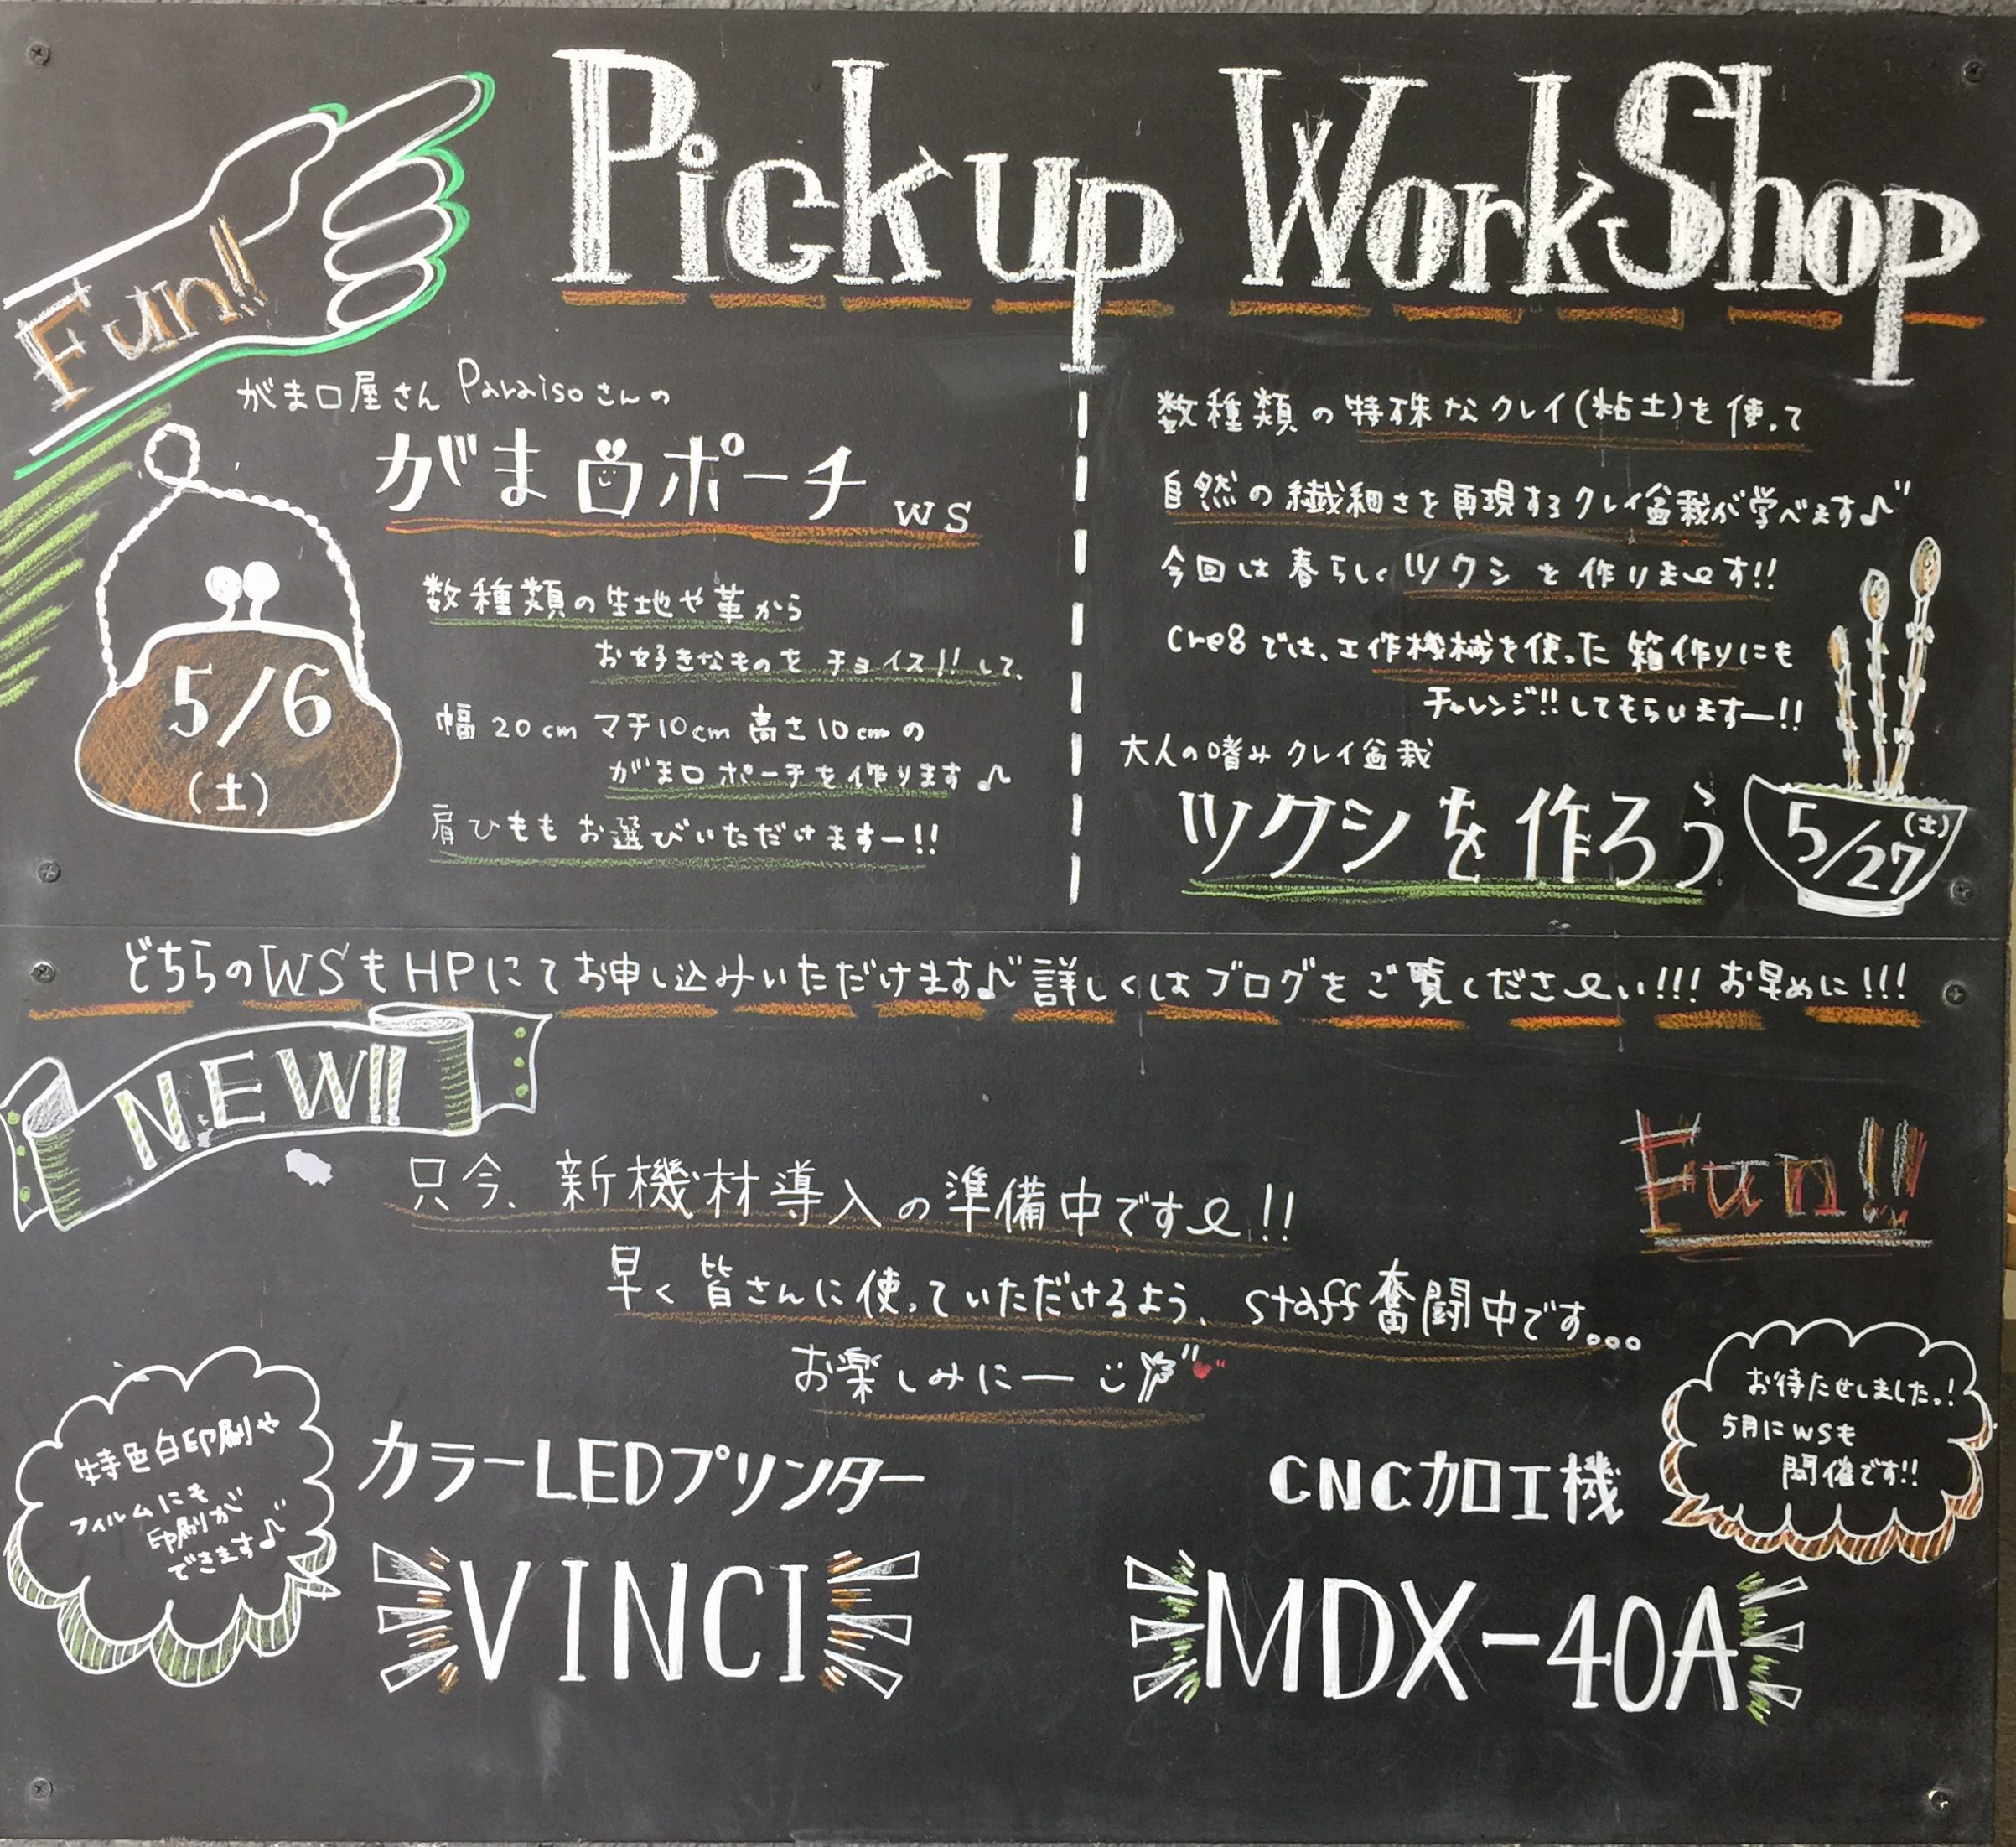 Pickup WorkShop
Fun!!
がま口屋さん Paraisoさんの
がま口ポーチ WS
5/6
(土)
数種類の生地や革から
お好きなものを チョイス!! して、
幅 20cm マチ10cm 高さ10cmの
がま口ポーチを作ります♪
肩ひももお選びいただけますー!!
数種類の特殊なクレイ(粘土)を使って
自然の繊細さを再現するクレイ盆栽が学べます♪
今回は春らしくツクシを作りまーす!!
cre8では、工作機械を使った箱作りにも
チャレンジ!!してもらいますー!!
大人の嗜みクレイ盆栽
ツクシを作ろう
5/27
(土)
どちらのWSもHPにてお申し込みいただけます♪詳しくはブログをご覧くださーい!!! お早めに!!!
NEW!!
Fun!!
只今、新機材導入の準備中です〜!!
早く皆さんに使っていただけるよう、staff奮闘中です。。。
お楽しみにー
特色白印刷や
フィルムにも
印刷が
できます♪
カラーLEDプリンター
VINCI
CNC加工機
MDX-40A
お待たせしましたっ!
5月にWSも
開催です!!